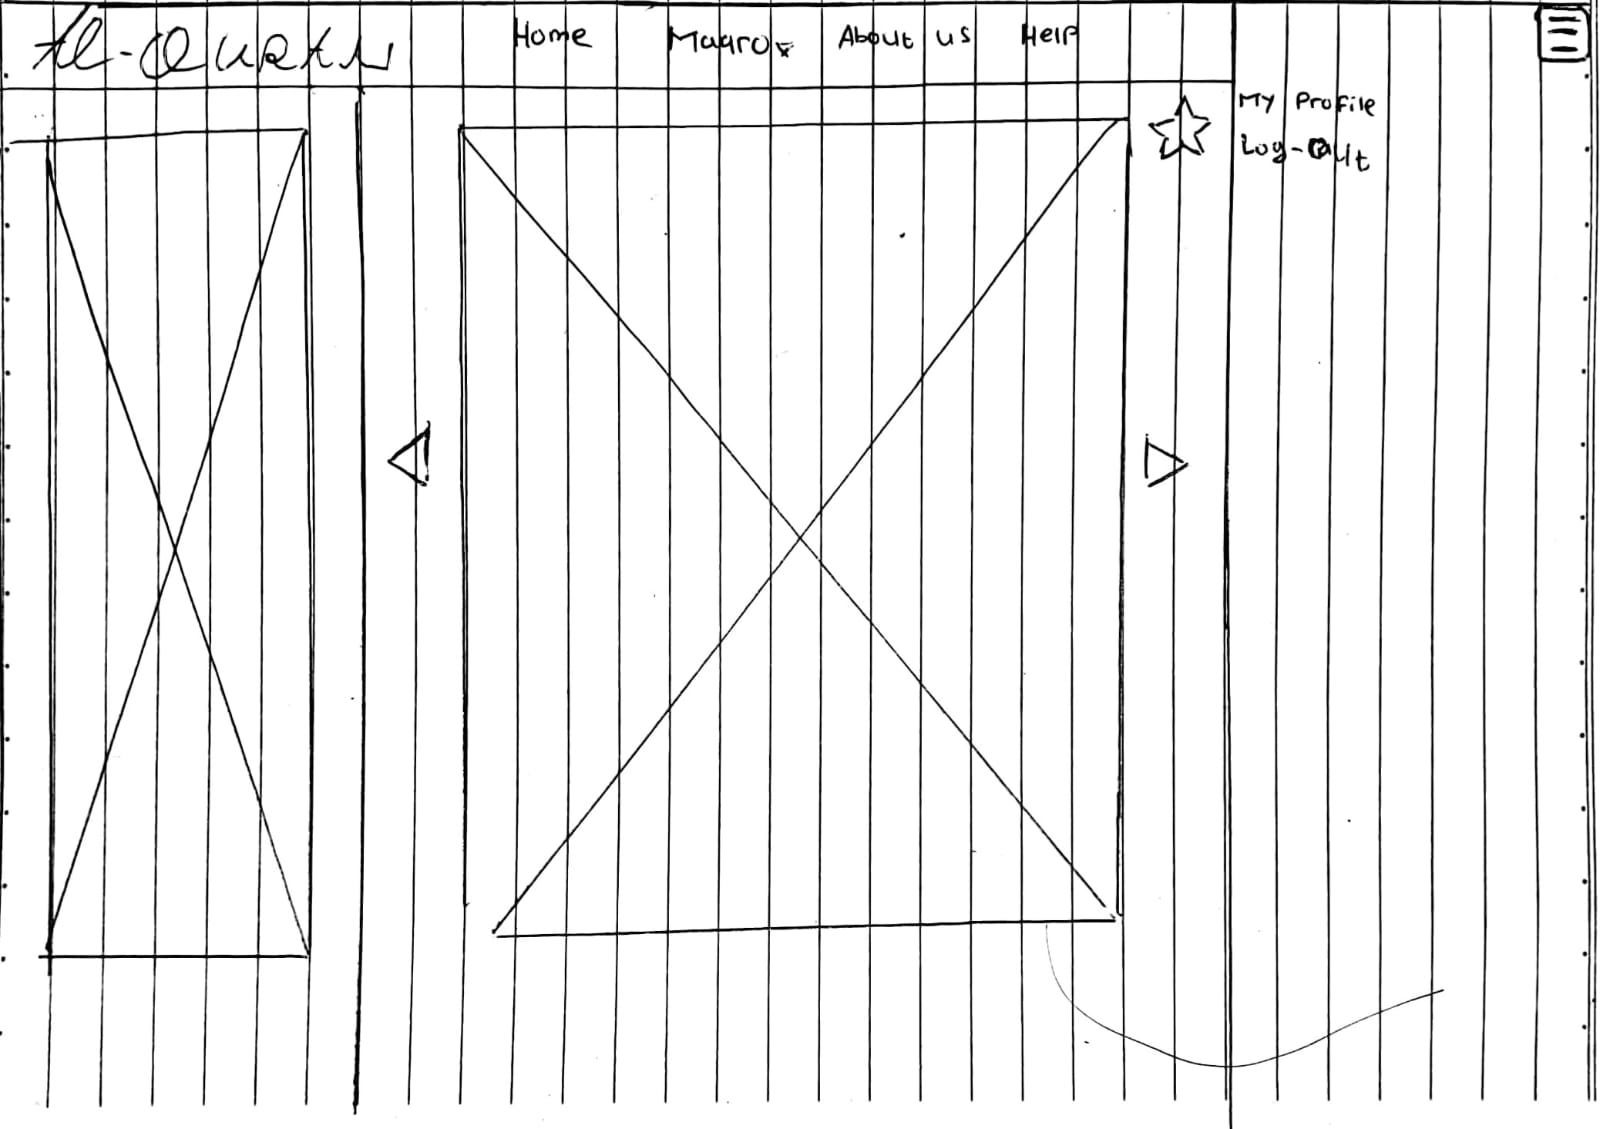 Al-Quran
Home
About us
Help
My Profile
Log-Out